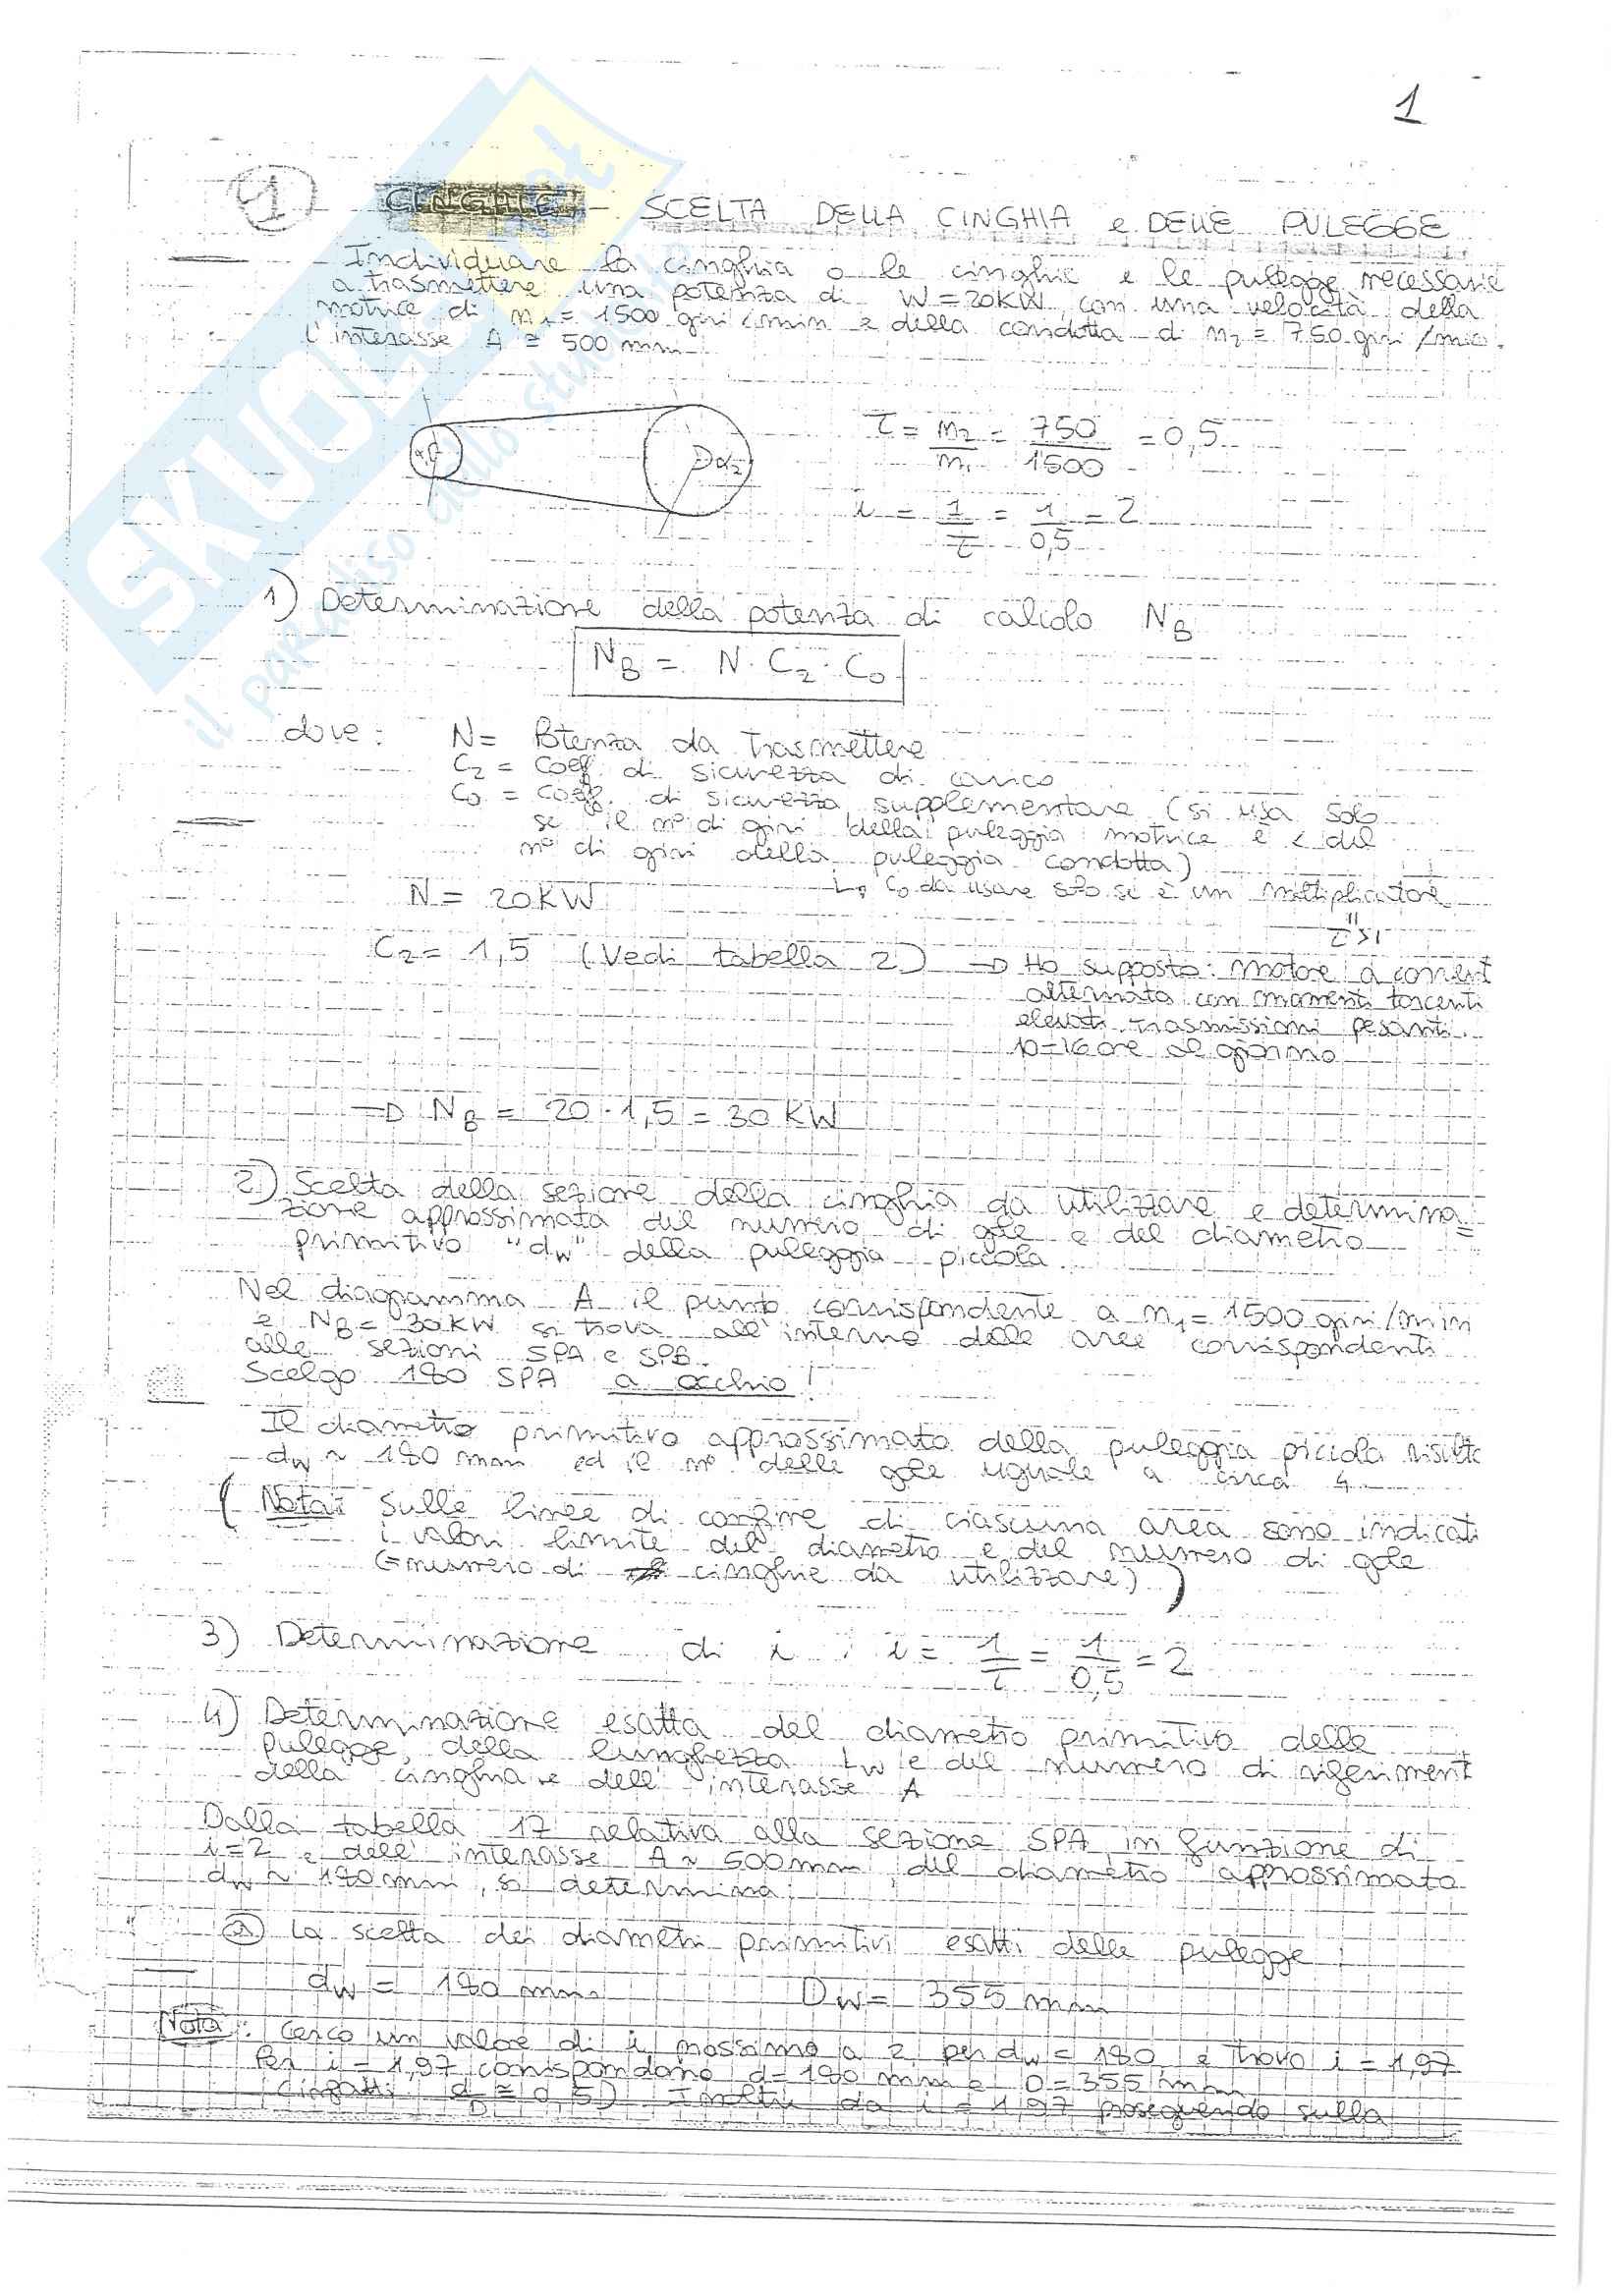 1
1) CINGHIE - SCELTA DELLA CINGHIA e DELLE PULEGGE
Individuare la cinghia o le cinghie e le pulegge necessarie
a trasmettere una potenza di W = 20KW, con una velocità della
motrice di n1 = 1500 giri/min e della condotta di n2 = 750 giri/min.
l'interasse A ≅ 500 mm
τ = n2/n1 = 750/1500 = 0,5
i = 1/τ = 1/0,5 = 2
1) Determinazione della potenza di calcolo NB
NB = N · C2 · C0
dove: N = Potenza da trasmettere
C2 = Coeff. di sicurezza di carico
C0 = Coeff. di sicurezza supplementare (si usa solo
se il n° di giri della puleggia motrice è < del
n° di giri della puleggia condotta)
C0 da usare solo se è un moltiplicatore
τ>1
N = 20KW
C2 = 1,5 (Vedi tabella 2) → Ho supposto: motore a corrent
alternata con momenti torcenti
elevati. Trasmissioni pesanti.
10÷16 ore al giorno
→ NB = 20 · 1,5 = 30 KW
2) Scelta della sezione della cinghia da utilizzare e determina=
zione approssimata del numero di gole e del diametro
primitivo "dw" della puleggia piccola.
Nel diagramma A il punto corrispondente a n1 = 1500 giri/min
e NB = 30KW si trova all'interno delle aree corrispondenti
alle sezioni SPA e SPB.
Scelgo 180 SPA a occhio!
Il diametro primitivo approssimato della puleggia piccola risulta
dw ~ 180 mm ed il n° delle gole uguale a circa 4
(Nota: Sulle linee di confine di ciascuna area sono indicati
i valori limite del diametro e del numero di gole
(=numero di cinghie da utilizzare))
3) Determinazione di i : i = 1/τ = 1/0,5 = 2
4) Determinazione esatta del diametro primitivo delle
pulegge, della lunghezza Lw e del numero di riferiment
della cinghia e dell'interasse A
Dalla tabella 17 relativa alla sezione SPA, in funzione di
i=2 e dell'interasse A ~ 500mm del diametro approssimato
dw ~ 180mm, si determina:
a) la scelta dei diametri primitivi esatti delle pulegge
dw = 180 mm Dw = 355 mm
Nota: Cerco un valore di i prossimo a 2 per dw = 180 e trovo i = 1,97
Per i = 1,97 corrispondono d=180 mm e D=355 mm
(infatti d/D ≅ 0,5). Inoltre da i = 1,97 proseguendo sulla
SKUOLA.net
il paradiso dello studente